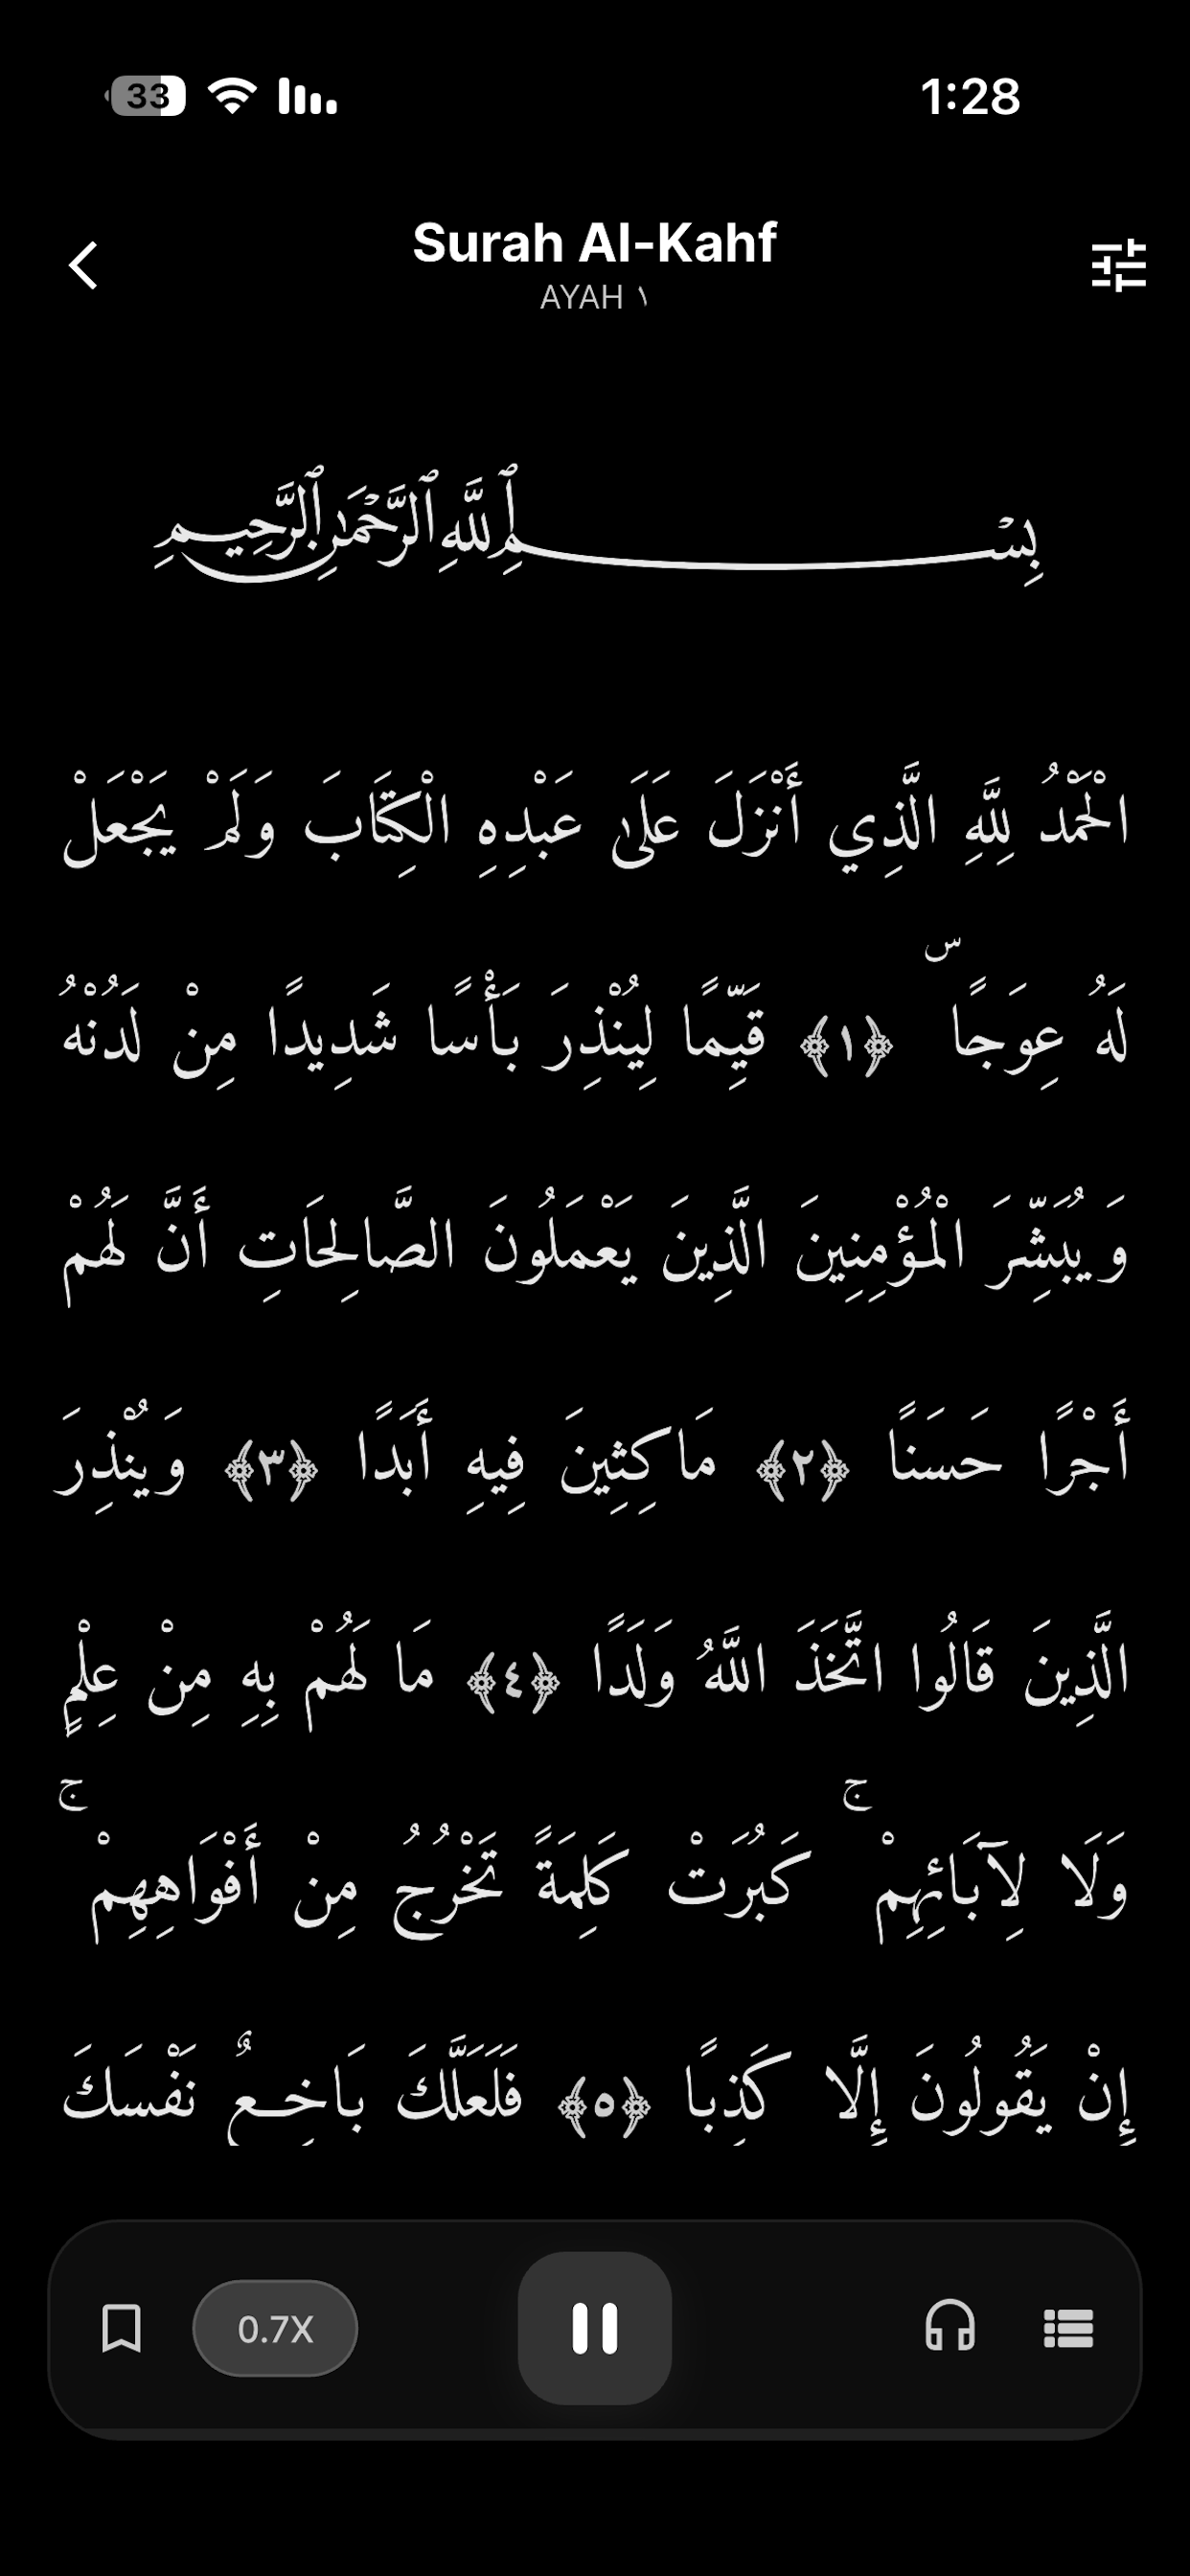 33
1:28
Surah Al-Kahf
AYAH ١
بِسْمِ ٱللَّهِ ٱلرَّحْمَٰنِ ٱلرَّحِيمِ
الْحَمْدُ لِلَّهِ الَّذِي أَنْزَلَ عَلَىٰ عَبْدِهِ الْكِتَابَ وَلَمْ يَجْعَلْ
لَهُ عِوَجًا ۜ ﴿١﴾ قَيِّمًا لِيُنْذِرَ بَأْسًا شَدِيدًا مِنْ لَدُنْهُ
وَيُبَشِّرَ الْمُؤْمِنِينَ الَّذِينَ يَعْمَلُونَ الصَّالِحَاتِ أَنَّ لَهُمْ
أَجْرًا حَسَنًا ﴿٢﴾ مَاكِثِينَ فِيهِ أَبَدًا ﴿٣﴾ وَيُنْذِرَ
الَّذِينَ قَالُوا اتَّخَذَ اللَّهُ وَلَدًا ﴿٤﴾ مَا لَهُمْ بِهِ مِنْ عِلْمٍ
وَلَا لِآبَائِهِمْ ۚ كَبُرَتْ كَلِمَةً تَخْرُجُ مِنْ أَفْوَاهِهِمْ ۚ
إِنْ يَقُولُونَ إِلَّا كَذِبًا ﴿٥﴾ فَلَعَلَّكَ بَاخِعٌ نَفْسَكَ
0.7X